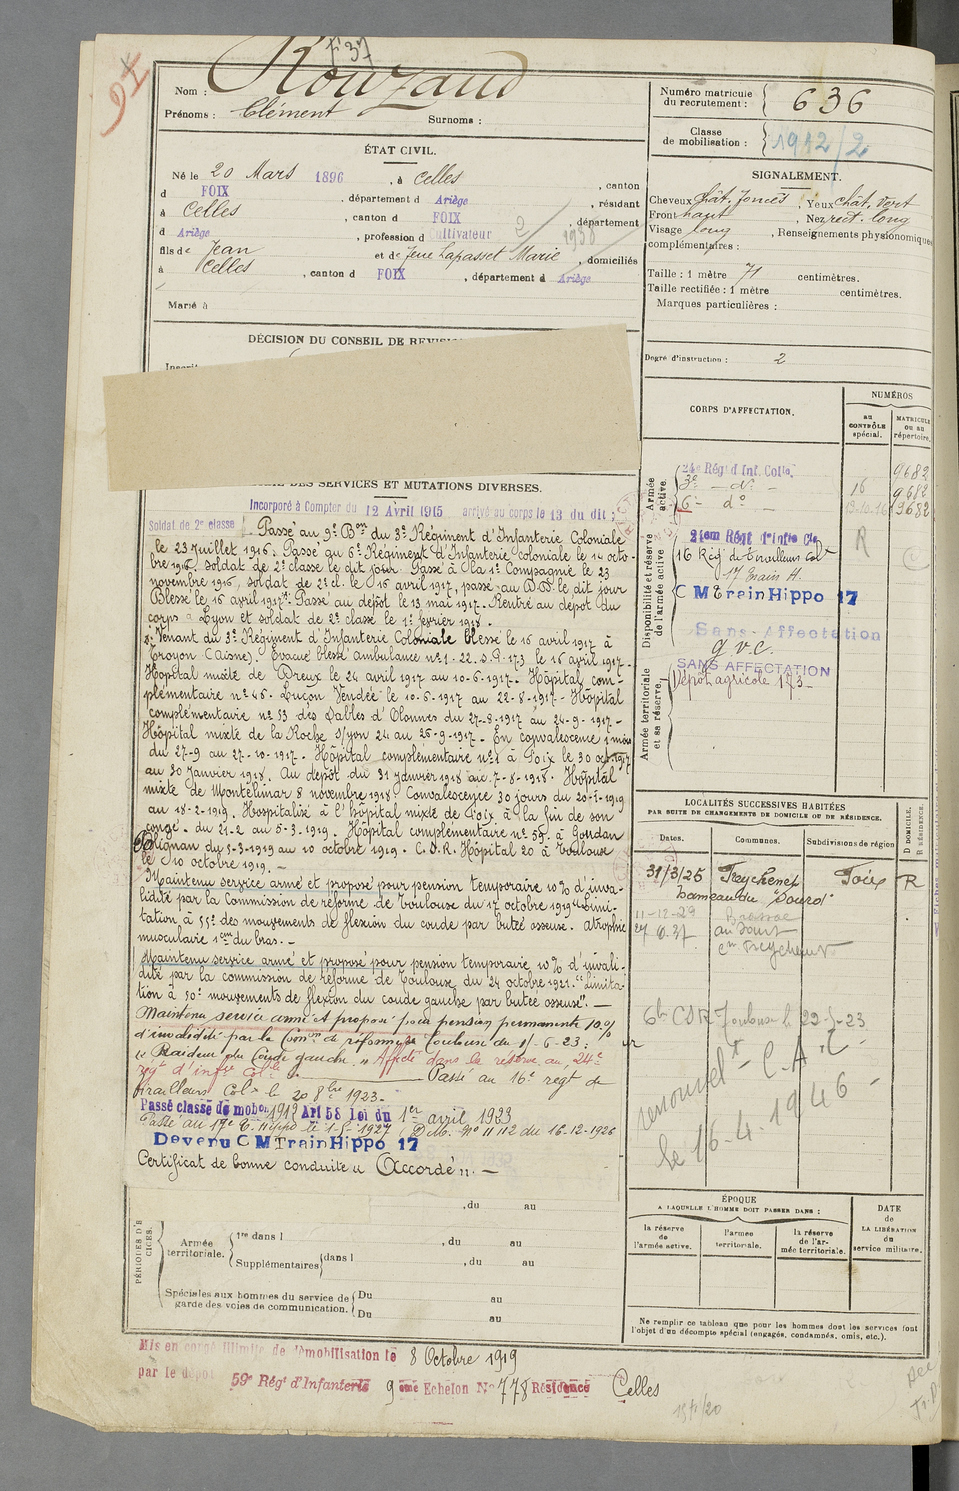 F 37
94
Nom : Rouzaud
Prénoms : Clément Surnoms :
Numéro matricule du recrutement : 636
Classe de mobilisation : 1912/2
ÉTAT CIVIL.
Né le 20 Mars 1896, à Celles, canton
d FOIX, département d Ariège, résidant
à Celles, canton d FOIX, département
d Ariège, profession d Cultivateur 2/1938
fils de Jean et de feue Lapasset Marie, domiciliés
à Celles, canton d FOIX, département d Ariège
Marié à
SIGNALEMENT.
Cheveux chât. foncés, Yeux chât. vert
Front haut, Nez rect. long
Visage long, Renseignements physionomiques
complémentaires :
Taille : 1 mètre 71 centimètres.
Taille rectifiée : 1 mètre centimètres.
Marques particulières :
Degré d'instruction : 2
DÉCISION DU CONSEIL DE
DES SERVICES ET MUTATIONS DIVERSES.
Incorporé à Compter du 12 Avril 1915 arrivé au corps le 13 du dit ;
Soldat de 2e classe Passé au 9e Bon du 3e Régiment d'Infanterie Coloniale
le 23 juillet 1916. Passé au 6e Régiment d'Infanterie coloniale le 14 octo-
bre 1916, soldat de 2e classe le dit jour. Passé à la 1e Compagnie le 23
novembre 1916, soldat de 2e cl. le 16 avril 1917, passé au D.D. le dit jour
Blessé le 16 avril 1917. Passé au dépôt le 13 mai 1917. Rentré au dépôt du
corps à Lyon et soldat de 2e classe le 1er février 1918.
Venant du 3e Régiment d'Infanterie Coloniale blessé le 16 avril 1917 à
Troyon (Aisne). Evacué blessé ambulance no 1-22. S.P. 173 le 16 avril 1917-
Hôpital mixte de Dreux le 24 avril 1917 au 10-6-1917- Hôpital com-
plémentaire no 46. Luçon Vendée le 10-6-1917 au 22-8-1917- Hôpital
complémentaire no 53 des Sables d'Olonnes du 27-8-1917 au 24-9-1917-
Hôpital mixte de la Roche s/yon 24 au 26-9-1917- En convalescence 1 mois
du 27-9 au 27-10-1917- Hôpital complémentaire no 1 à Foix le 30 oct. 1917
au 30 Janvier 1918. Au dépôt du 31 Janvier 1918 au 7-8-1918. Hôpital
mixte de Montélimar 8 novembre 1918. Convalescence 30 jours du 20-1-1919
au 18-2-1919. Hospitalisé à l'hôpital mixte de Foix à la fin de son
congé. du 21-2 au 5-3-1919 - Hôpital complémentaire no 55. à Gourdan
Polignan du 5-3-1919 au 10 octobre 1919. C.S.R. Hôpital 20 à Toulouse
le 10 octobre 1919.-
Maintenu service armé et proposé pour pension temporaire 10% d'inva-
lidité par la Commission de réforme de Toulouse du 17 octobre 1919 "Limi-
tation à 55° des mouvements de flexion du coude par butée osseuse. Atrophie
musculaire 1cm du bras.-
Maintenu service armé et proposé pour pension temporaire 10% d'invali-
dité par la commission de réforme de Toulouse du 24 octobre 1921. "Limita-
tion à 50° mouvements de flexion du coude gauche par butée osseuse".-
Maintenu service armé et proposé pour pension permanente 10%
d'invalidité par la Comon de réforme de Toulouse du 1-6-23 :
" Raideur du Coude gauche. " Affecté dans la réserve au 24e
régt d'infie Colle Passé au 16e régt de
tirailleurs Colx le 20 8bre 1923.-
Passé classe de mobon 1912 Art 58 loi du 1er avril 1923
Passé au 17e C. Hippo le 1-5-1927 (D.M. No 11112 du 16-12-1926
Devenu C M Train Hippo 17
Certificat de bonne conduite " Accordé ". -
CORPS D'AFFECTATION.
NUMÉROS
au CONTRÔLE spécial.
MATRICULE ou au répertoire.
Armée active.
24e Régt d'Inf. Colle. 9682
3e - do - 16 9682
6e - do - 19-10-16 9682
Disponibilité et réserve de l'armée active
21em Régt d'Infie Cle R
16 Rég de Tirailleurs Colx
17 Train H.
C M Train Hippo 17
Sans Affectation
g.v.c.
Armée territoriale et sa réserve.
SANS AFFECTATION
Dépôt agricole 173-
LOCALITÉS SUCCESSIVES HABITÉES
PAR SUITE DE CHANGEMENTS DE DOMICILE OU DE RÉSIDENCE.
Dates. Communes. Subdivisions de région D DOMICILE. R RÉSIDENCE.
31/3/25 Freychenet Foix R
hameau du "Sourd"
11-12-29 Brassac
27 6.37 au Sourt
cne Freychenet
6e CSR Toulouse le 22-5-23
renouvelt C.A.C. -
le 16-4-1946 -
PÉRIODES D'EXERCICES.
, du au
Armée territoriale. 1re dans l , du au
Supplémentaires dans l , du au
Spéciales aux hommes du service de garde des voies de communication. Du au
Du au
ÉPOQUE
A LAQUELLE L'HOMME DOIT PASSER DANS :
la réserve de l'armée active.
l'armée territoriale.
la réserve de l'armée territoriale.
DATE de LA LIBÉRATION du service militaire.
Ne remplir ce tableau que pour les hommes dont les services font
l'objet d'un décompte spécial (engagés, condamnés, omis, etc.).
Mis en congé illimité de démobilisation le 8 Octobre 1919
par le dépôt 59e Régt d'Infanterie 9ème Echelon No 778 Résidence Celles